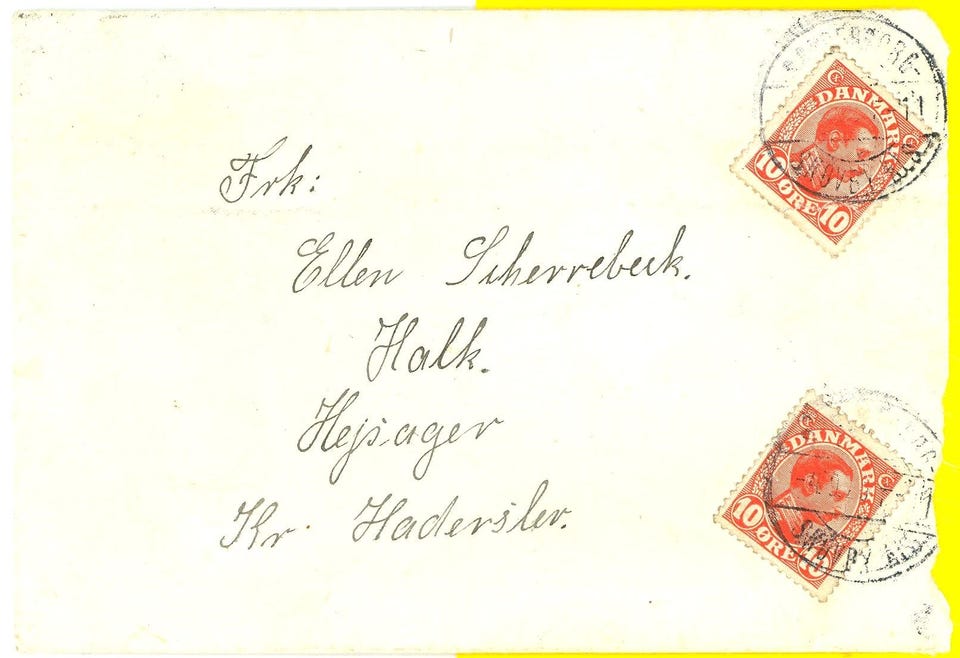 Frk:
Ellen Scherrebeck.
Halk.
Hejsager
Kr. Haderslev.
DANMARK
10 ØRE 10
DANMARK
10 ØRE 10